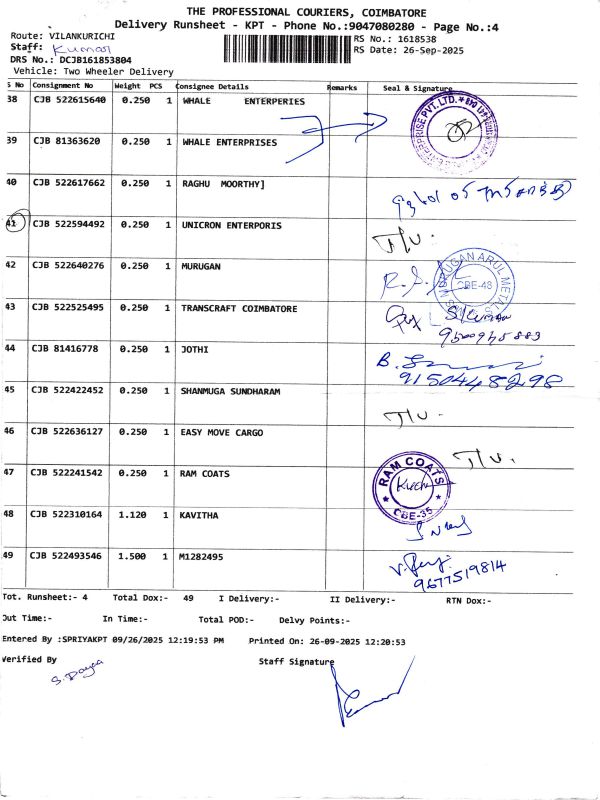 THE PROFESSIONAL COURIERS, COIMBATORE
Delivery Runsheet - KPT - Phone No.:9047080280 - Page No.:4
Route: VILANKURICHI
RS No.: 1618538
Staff: Kumar
RS Date: 26-Sep-2025
DRS No.: DCJB161853804
Vehicle: Two Wheeler Delivery
S No Consignment No Weight PCS Consignee Details Remarks Seal & Signature
38 CJB 522615640 0.250 1 WHALE ENTERPERIES
39 CJB 81363620 0.250 1 WHALE ENTERPRISES
40 CJB 522617662 0.250 1 RAGHU MOORTHY]
41 CJB 522594492 0.250 1 UNICRON ENTERPORIS
42 CJB 522640276 0.250 1 MURUGAN
MURUGAN ARUL METALS
CBE-48
43 CJB 522525495 0.250 1 TRANSCRAFT COIMBATORE
9500945883
44 CJB 81416778 0.250 1 JOTHI
9150448298
45 CJB 522422452 0.250 1 SHANMUGA SUNDHARAM
46 CJB 522636127 0.250 1 EASY MOVE CARGO
47 CJB 522241542 0.250 1 RAM COATS
RAM COATS
CBE-35
48 CJB 522310164 1.120 1 KAVITHA
49 CJB 522493546 1.500 1 M1282495
9677519814
Tot. Runsheet:- 4 Total Dox:- 49 I Delivery:- II Delivery:- RTN Dox:-
Out Time:- In Time:- Total POD:- Delvy Points:-
Entered By :SPRIYAKPT 09/26/2025 12:19:53 PM Printed On: 26-09-2025 12:20:53
Verified By Staff Signature